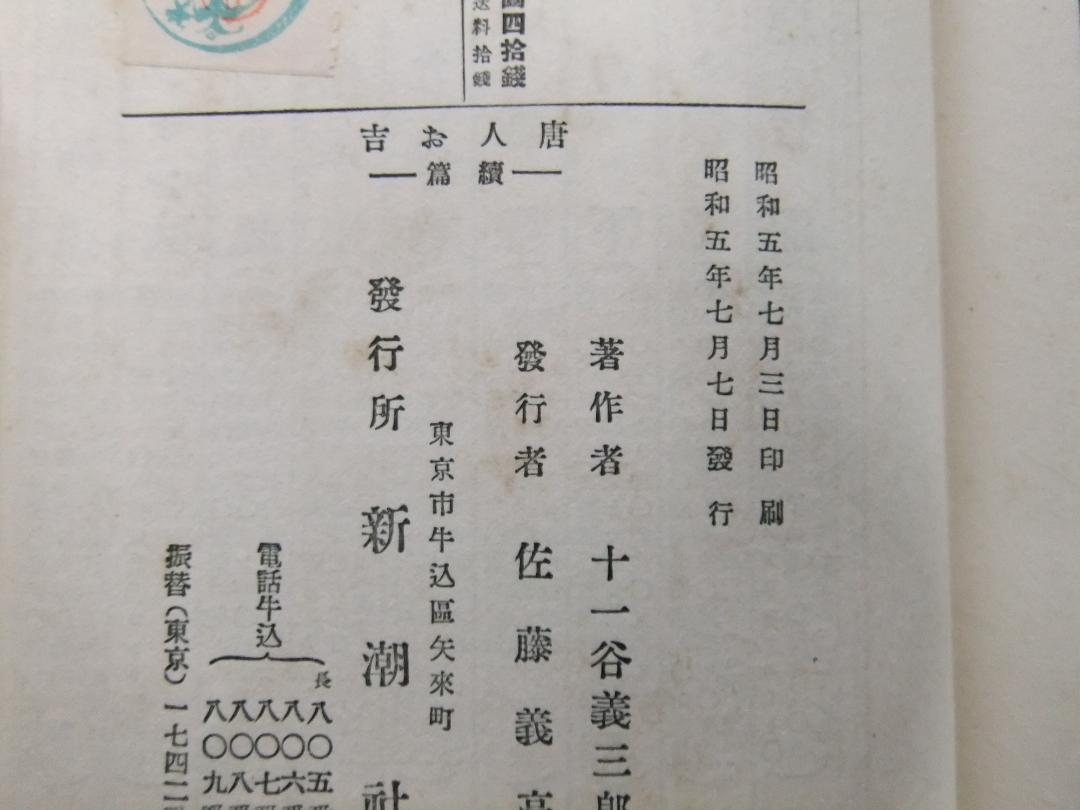 四拾錢
送料拾錢
唐人お吉
―續篇―
昭和五年七月三日印刷
昭和五年七月七日發行
著作者 十一谷義三郎
發行者 佐藤義亮
東京市牛込區矢來町
發行所 新潮社
電話牛込
長八〇五
八〇六
八〇七
八〇八
八〇九
振替(東京)一七四二